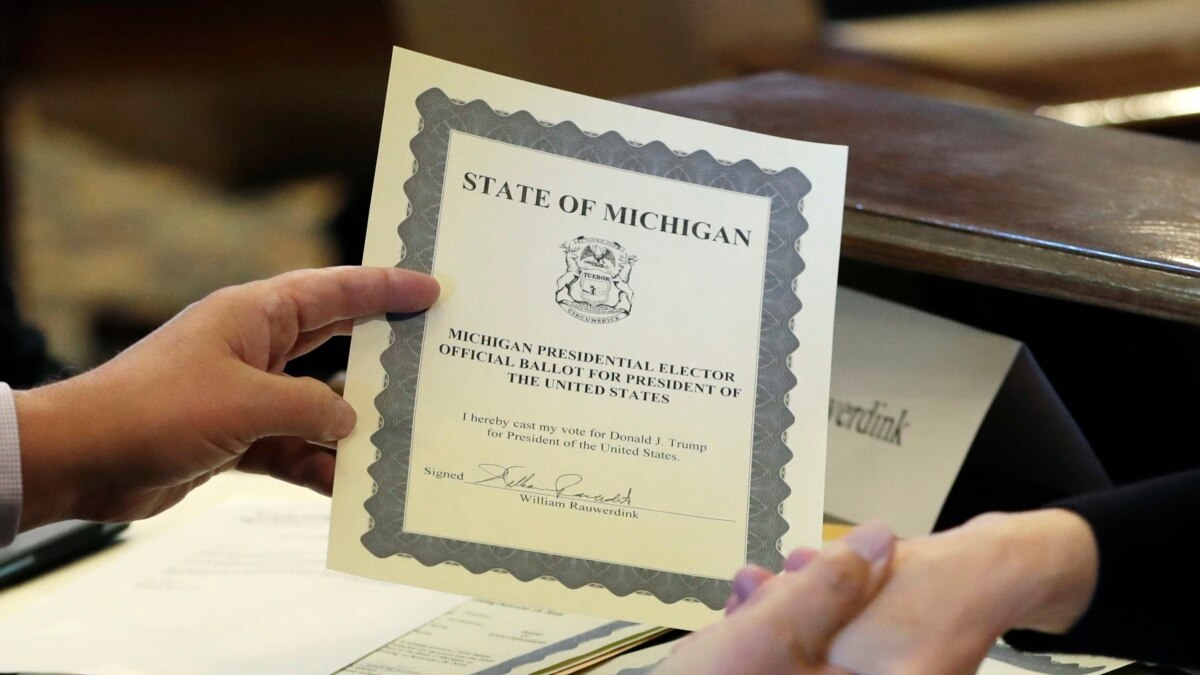 STATE OF MICHIGAN
TUEBOR
CIRCUMSPICE
MICHIGAN PRESIDENTIAL ELECTOR
OFFICIAL BALLOT FOR PRESIDENT OF
THE UNITED STATES
I hereby cast my vote for Donald J. Trump
for President of the United States.
Signed
William Rauwerdink
werdink